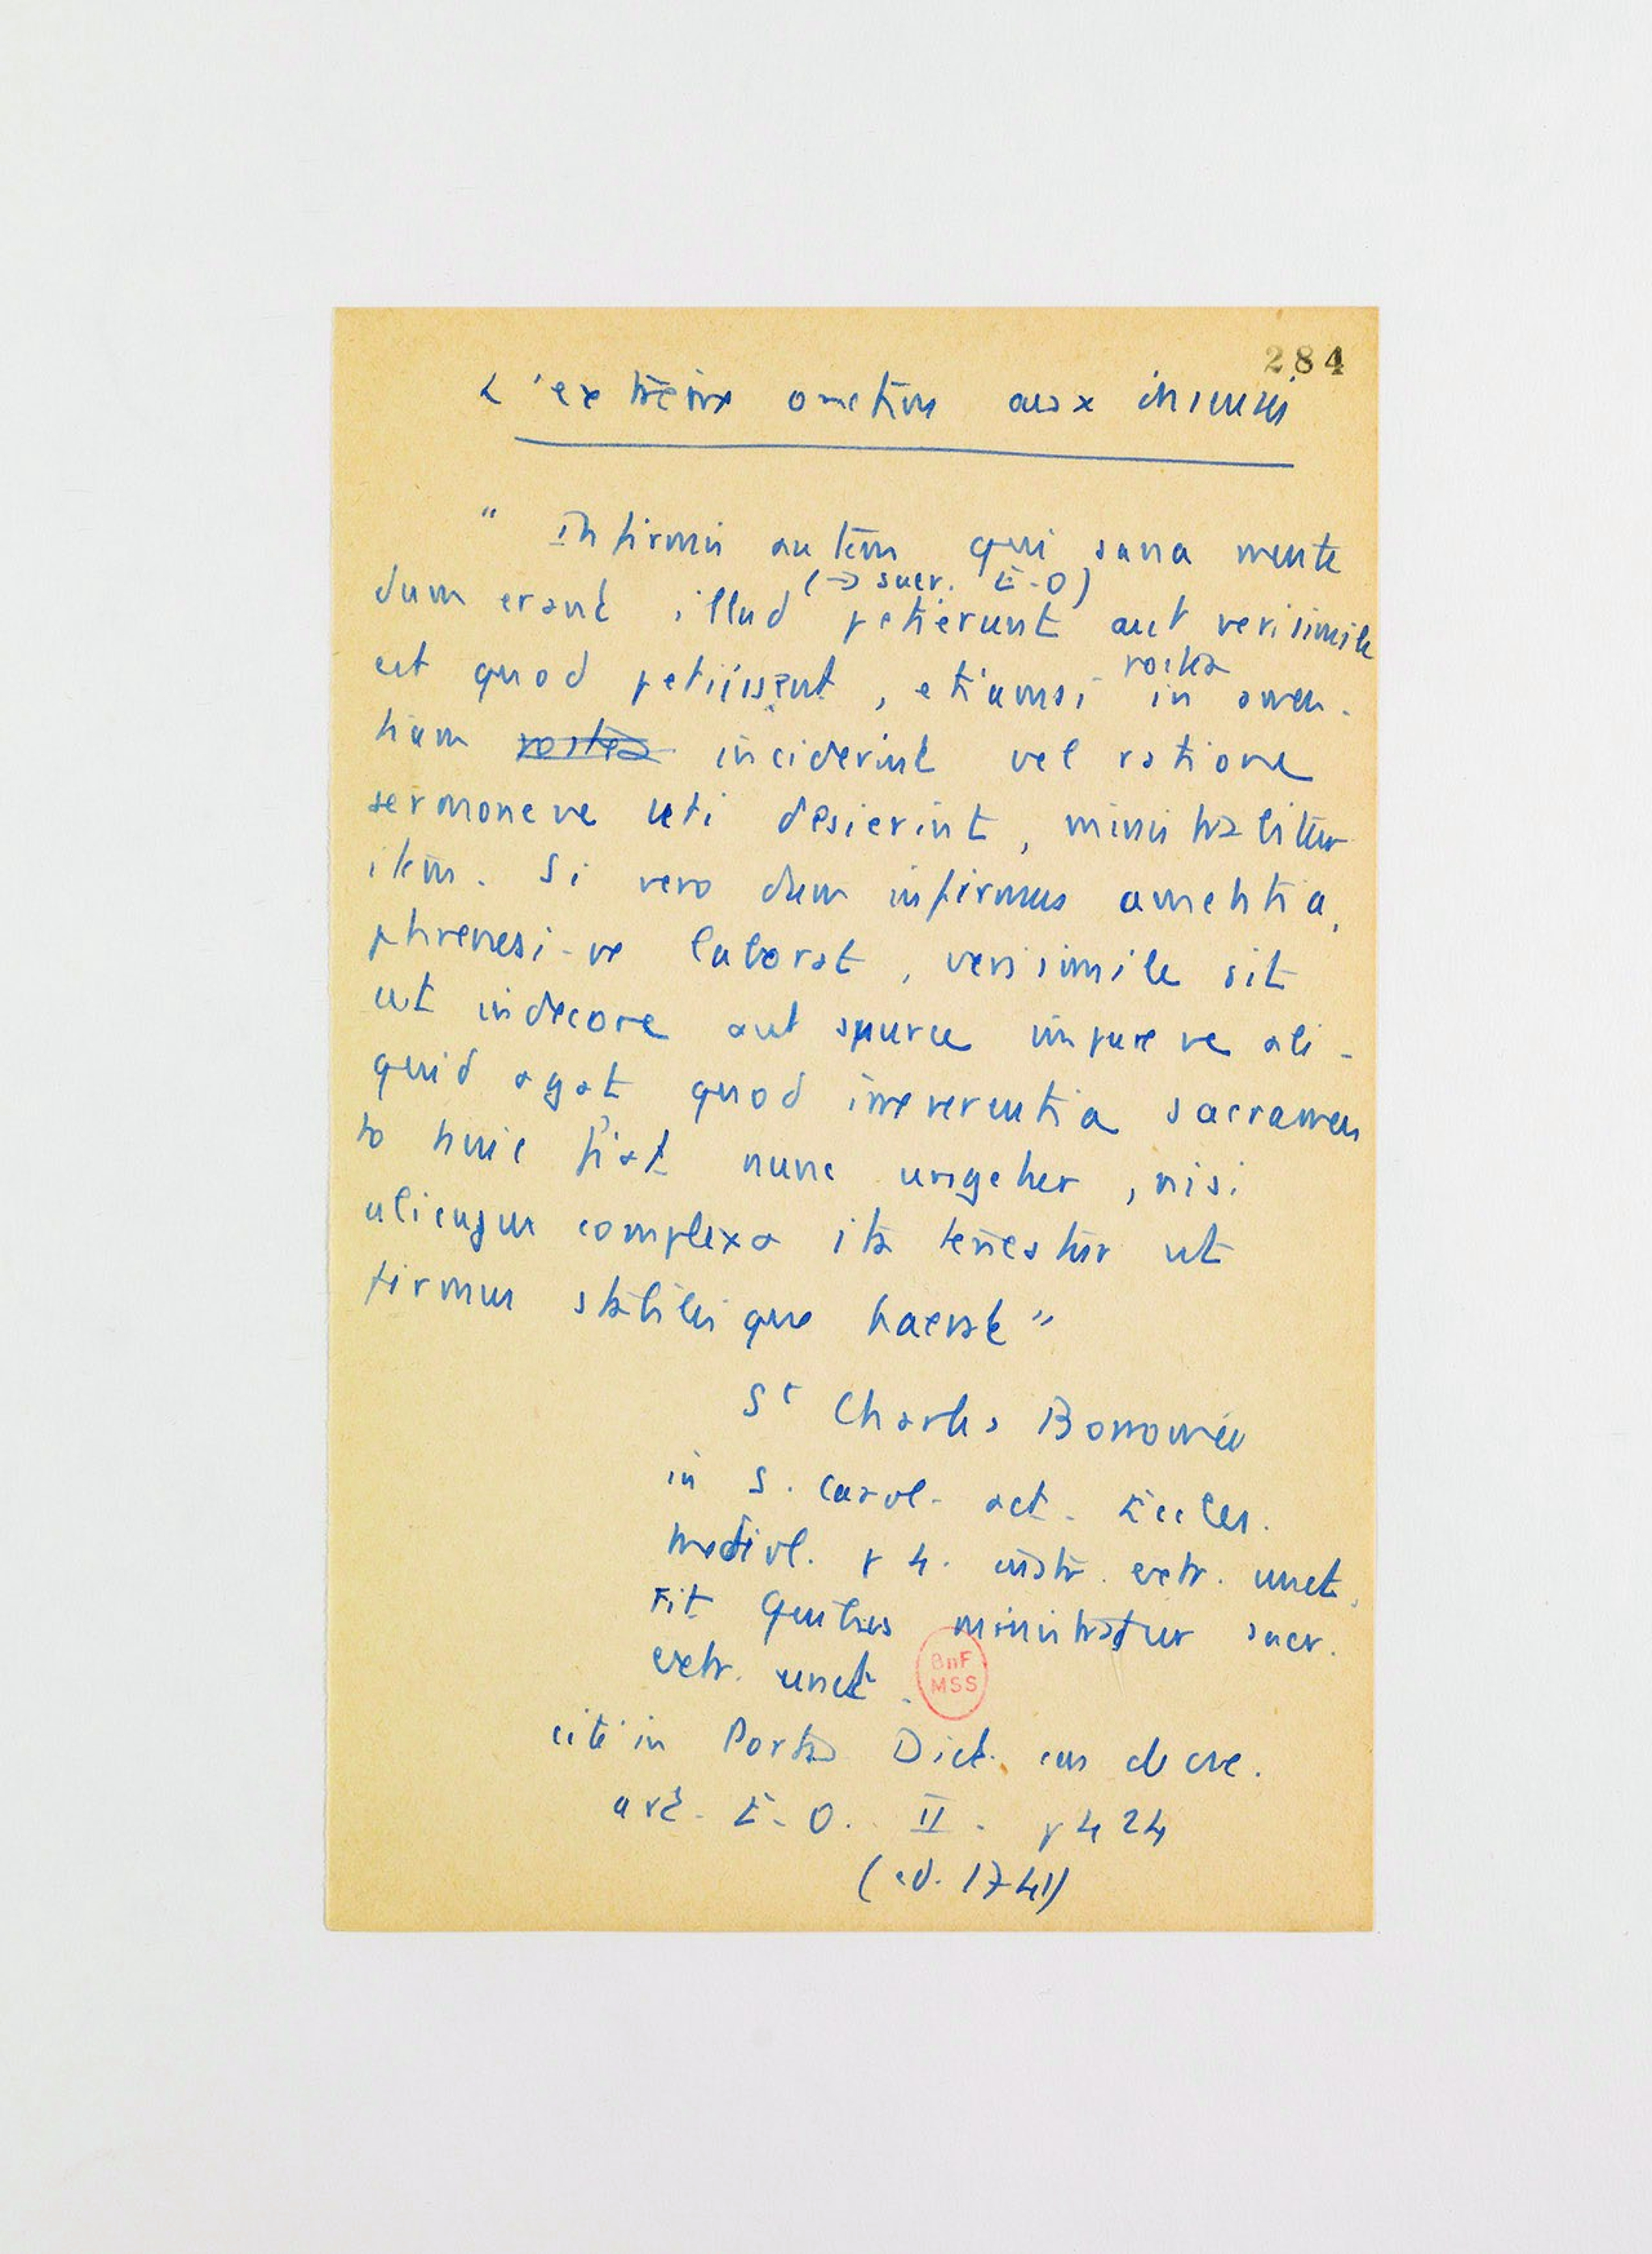 284
L'extrême onction aux insensés
" Infirmis autem qui sana mente
(→ sacr. E-O)
dum erant illud petierunt aut verisimile
est quod petiissent, etiamsi postea in amen-
tiam postea inciderint vel ratione
sermoneve uti desierint, ministratitur
item. Si vero dum infirmus amentia,
phrenesi-ve laborat, verisimile sit
ut indecore aut spurce impureve ali-
quid agat quod irreverentia sacramen
to huic fiat nunc ungetur, nisi
alicujus complexa ita teneatur ut
firmus stabilisque haereat "
St Charles Borromée
in S. Carol. act. Eccles.
Mediol. p 4. instr. extr. unct.
Tit Quibus ministratur sacr.
extr. unct.
BnF
MSS
cité in Pontas Dict. cas de csc.
art. E-O. II. p 424
(ed. 1741)